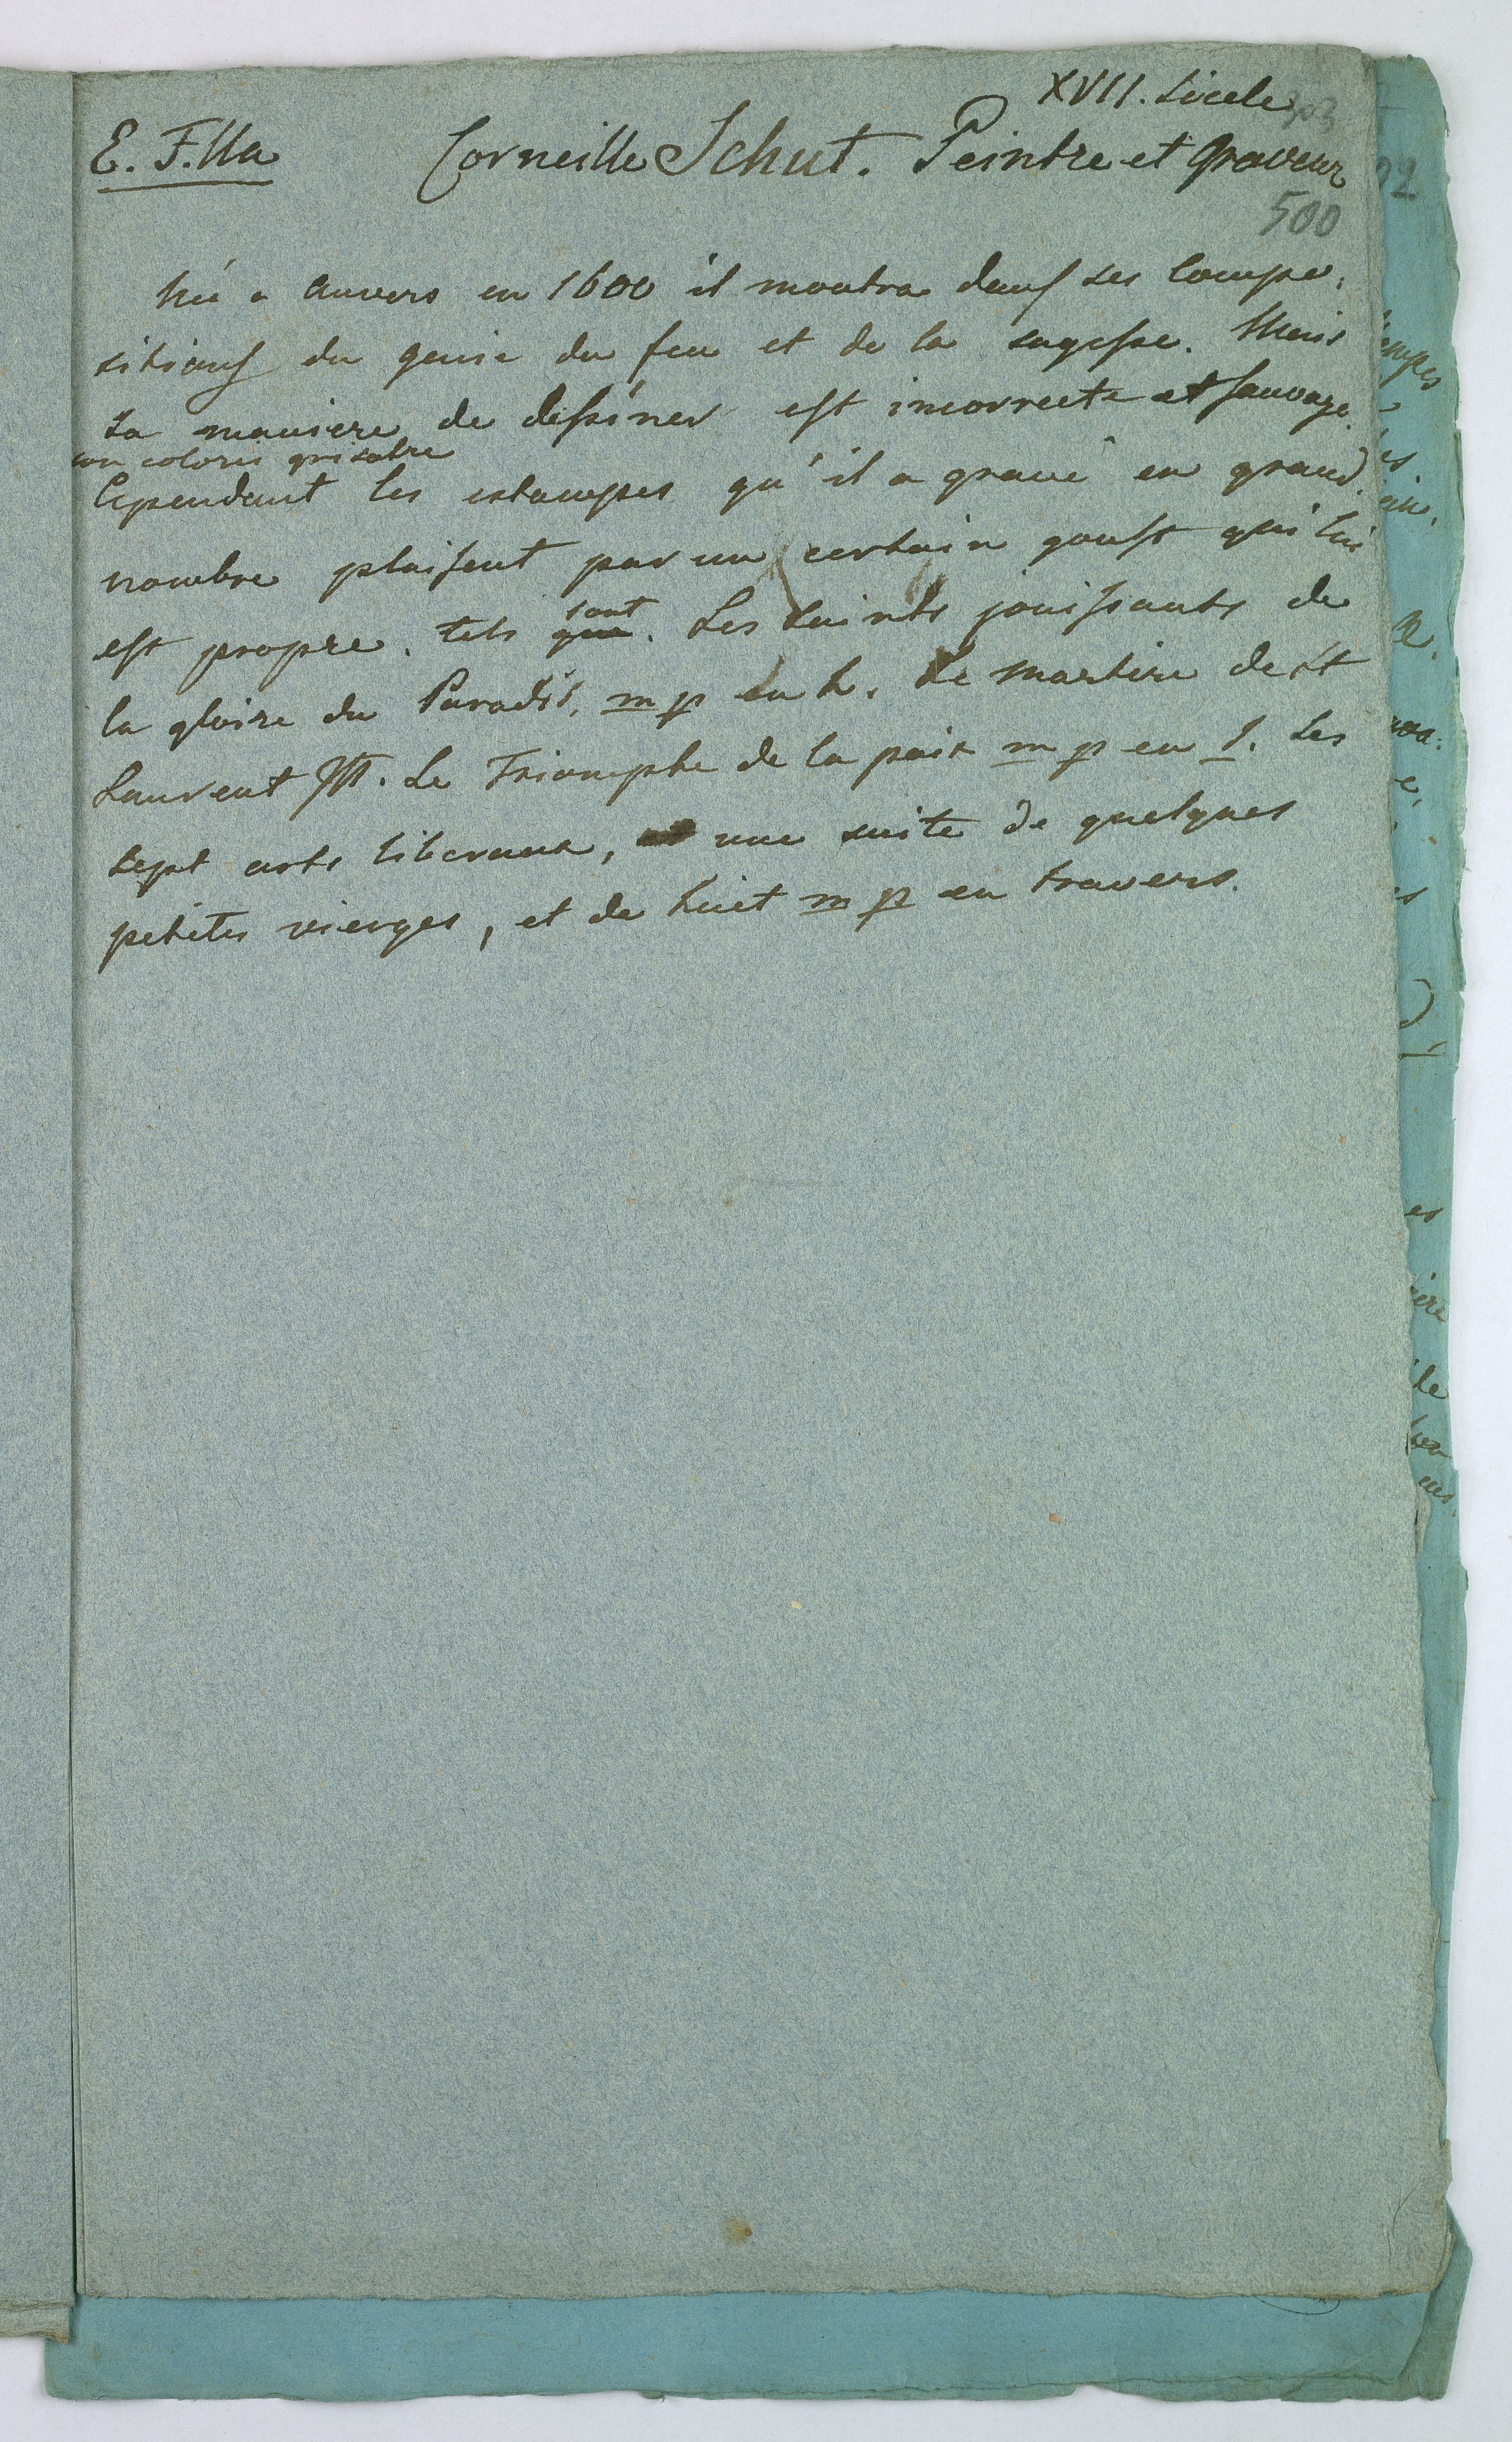 XVII. Siecle
E. F.lla Corneille Schut. Peintre et Graveur
500
Né a Anvers en 1600 il montra dans ses compo:
sitions du genie du feu et de la sagesse. Mais
sa maniere de dessiner est incorrecte et sauvage.
son coloris grisatre
Cependant les estampes qu'il a gravé en grand
nombre plaisent par un certain goust qui lui
est propre. tels sont. Les Saints jouissants de
la gloire du Paradis, m p en h. Le Martire de St
Laurent. Le Triomphe de la paix m p en t. Les
sept arts liberaux, une suite de quelques
petites vierges, et de huit m p en travers.